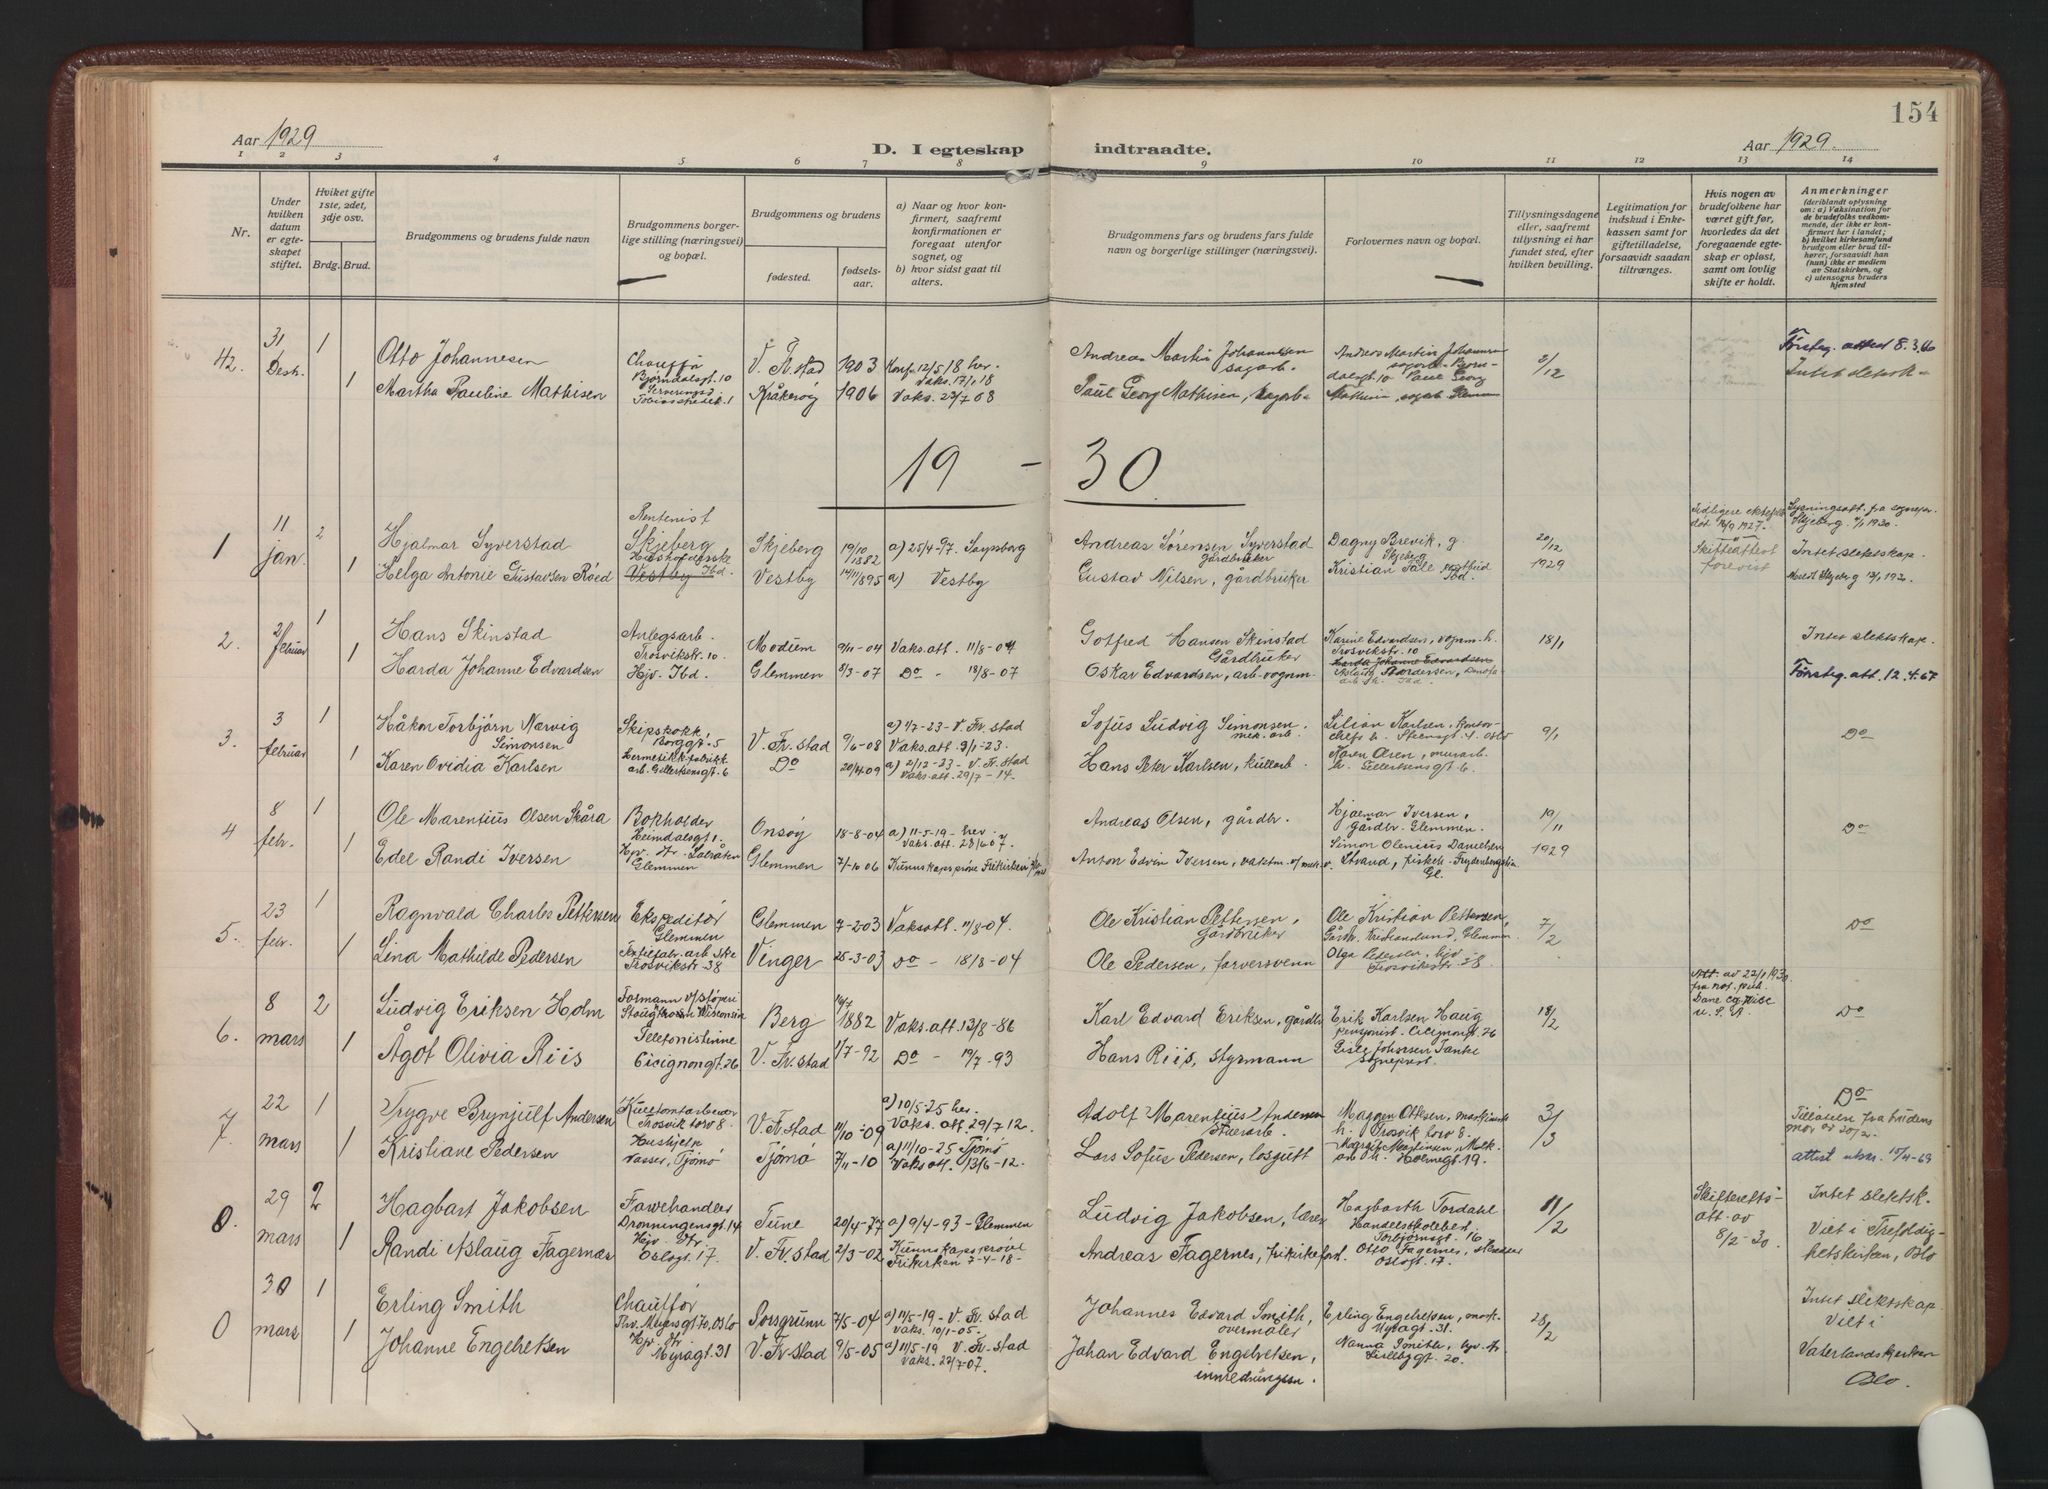 154
Aar 1929
D. I egteskap indtraadte.
Aar 1929.
1 2 3 4 5 6 7 8 9 10 11 12 13 14
Nr.
Under hvilken datum er egteskapet stiftet.
Hviket gifte 1ste, 2det, 3dje osv.
Brdg. Brud.
Brudgommens og brudens fulde navn
Brudgommens borgerlige stilling (næringsvei) og bopæl.
Brudgommens og brudens
fødested.
fødselsaar.
a) Naar og hvor konfirmert, saafremt konfirmationen er foregaat utenfor sognet, og
b) hvor sidst gaat til alters.
Brudgommens fars og brudens fars fulde navn og borgerlige stillinger (næringsvei).
Forlovernes navn og bopæl.
Tillysningsdagene eller, saafremt tillysning ei har fundet sted, efter hvilken bevilling.
Legitimation for indskud i Enkekassen samt for giftetilladelse, forsaavidt saadan tiltrænges.
Hvis nogen av brudefolkene har været gift før, hvorledes da det foregaaende egteskap er opløst, samt om lovlig skifte er holdt.
Anmerkninger (deriblandt oplysning om: a) Vaksination for de brudefolks vedkommende, der ikke er konfirmert her i landet; b) hvilket kirkesamfund brudgom eller brud tilhører, forsaavidt han (hun) ikke er medlem av Statskirken, og c) utensogns bruders hjemsted
42. 31 Desb. 1 Otto Johannesen Chauffør Bjørndalsgt. 10 V. Fr.stad 1903 Konf. 12/5 18 her. Vaks. 17/1 18 Andreas Martin Johannesen sagarb. Andreas Martin Johannesen sagarb. Bjørndalsgt 10 Paul Georg 2/12 Førsteg. attest 8.3.66
1 Martha Pauline Mathisen Kråkerøy 1906 Vaks. 22/7 08 Paul Georg Mathisen, sagarb. Mathisen, sagarb. Glemmen Intet slektsk.
19 - 30
1 11 jan. 2 Hjalmar Syverstad Rentenist Skjeberg Skjeberg 19/10 1882 a) 25/4-97. Andreas Sørensen Syverstad Gårdbruker Dagny Brevik, g. Skjeberg 20/12 1929 Tidligere ektefelle død 1927. Skifteattest forevist Lysningsatt. fra sognepr. Skjeberg 1930.
1 Helga Antonie Gustavsen Røed Vestby Ibd. Vestby 14/11 1895 a) Vestby Gustav Nilsen, gårdbruker Kristian Tale Ibd. Intet slektskap. Meldt Skjeberg 13/1 1930
2. 2/ februar 1 Hans Skinstad Anlegsarb. Trosvikstr. 10 Modum 9/11-04 Vaks. att. 11/8-04 Gotfred Hansen Skinstad Gårdbruker Karine Edvardsen, vognm. h. Trosvikstr. 10 18/1 Intet slektskap.
1 Harda Johanne Edvardsen Hjv. Ibd. Glemmen 3/3-07 Do - 18/8-07 Oskar Edvardsen, arb-vognm. Harda Johanne Edvardsen Førsteg. att. 12.4.67
3. 3 februar 1 Håkon Torbjørn Nærvig Simonsen Skipskokk, Borggt. 5 V. Fr.stad 9/6-08 a) 1/7-23-V. Fr.stad Vaks. att. 9/1-23. Sofus Ludvig Simonsen mek. arb. Lilian Karlsen, 9/1 Do
1 Karen Ovidia Karlsen Hermetikkfabrikk arb. Gillertsensgt. 6 Do 20/4 09 a) 2/12-23-V. Fr.stad Vaks. att. 29/7-14. Hans Peter Karlsen, kullarb. Karen Olsen, murarb. h. Gillertsensgt 6.
4 8 febr. 1 Ole Marentius Olsen Skåra Bokholder Heimdalsgt 1. Onsøy 18-8-04 a) 11-5-19-her Vaks. att. 28/6 07. Andreas Olsen, gårdbr. Hjalmar Iversen, gårdbr. Glemmen. 19/11 1929 Do
1 Edel Randi Iversen Hjv. Glemmen Glemmen 7/-10 06 Kunnskapsprøve Frikirken Anton Edvin Iversen, vaktm. v/ mek. v. Simon Olenius Danielsen Strand, fiskeh. Frydenbergstr. Gl.
5. 23 febr. 1 Ragnvald Charles Pettersen Ekspeditør Glemmen Glemmen 7-2 03 Vaksatt. 11/8-04. Ole Kristian Pettersen, Gårdbruker Ole Kristian Pettersen, Gårdbr. Kristianlund, Glemmen. 7/2 Do
1 Lina Mathilde Pedersen Trosvikstr-38 Vinger 25-3-03 Do - 18/8-04 Ole Pedersen, farversvenn Olga Pedersen, hjv Trosvikstr. 38.
6. 8 mars 2 Ludvig Eriksen Holm Formann v/støperi Stoughton Wisconsin Berg 16/7 1882 Vaks. att. 13/8-86 Karl Edvard Eriksen, gårdbr. Erik Karlsen Haug pensjonist. Cicignongt. 26 18/2 Att. av 22/1 1930 fra not. pub. Dane Co. Wisc U.S.A. Do
1 Ågot Olivia Riis Telefonistinne Cicignongt. 26 V. Fr.stad 1/7-92 Do - 19/7-93 Hans Riis, Styrmann Gisle Johnson Tanke sogneprest
7. 22 mars 1 Trygve Brynjulf Andersen Trosvik torv 8. V. Fr.stad 11/10-09 a) 10/5-25 her. Vaks. att 29/7 12. Adolf Marentius Andersen Stuerarb. Maggen Ottesen, h. Trosvik torv 8. 3/3 Do Tillatelse fra brudens mor av 20/2.
1 Kristiane Pedersen Hushjelp Vasser, Tjømø Tjømø 7/11-10 a) 11/10-25 Tjømø Vaks att. 13/6-12. Lars Sofus Pedersen, losgutt Margit Martinsen, Holmegt. 19. attest utskr. 15/4-69
8. 29 mars 2 Hagbart Jakobsen Farvehandler Dronningensgt. 14 Tune 20/4-77 a) 9/4-93-Glemmen Ludvig Jakobsen, lærer Hagbarth Tordahl Handelsskolebest. Torbjørnsgt. 16 11/2 Skifteretts-att. av 8/2-30. Intet slektsk. Viet i Trefoldighetskirken, Oslo
1 Randi Aslaug Fagernæs Hjv. Oslogt. 17. V. Fr.stad 2/3-02 Kunnskapsprøve Frikirken 7-4-18- Andreas Fagernes, frikirkeforst. Otto Fagernes, Oslogt. 17.
30 mars 1 Erling Smith Chauffør Thv. Meyersgt 70, Oslo Porsgrunn 7/5-04 a) 11/5-19-V. Fr.stad Vaks. 10/1-05. Johannes Edvard Smith, overmaler Erling Engebretsen, Myragt. 31. 28/2 Intet slektskap. Viet i
1 Johanne Engebretsen Hjv. Myragt. 31 V. Fr.stad 9/5-05 a) 11/5-19 V. Fr.stad Vaks. 22/7-07. Johan Edvard Engebretsen, Nanna Smith, hjv. Lislebygt. 20. Vaterlandskirken Oslo.